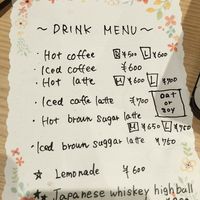 ~ DRINK MENU ~
・Hot coffee R ¥500 L ¥600
・Iced coffee ¥600
・Hot latte M ¥600 L ¥700
・Iced caffe latte ¥700
OAT or SOY
・Hot broun sugar latte
M ¥650 L ¥760
・Iced broun suggar latte ¥760
☆ Lemonade ¥600
☆ Japanese whiskey highball